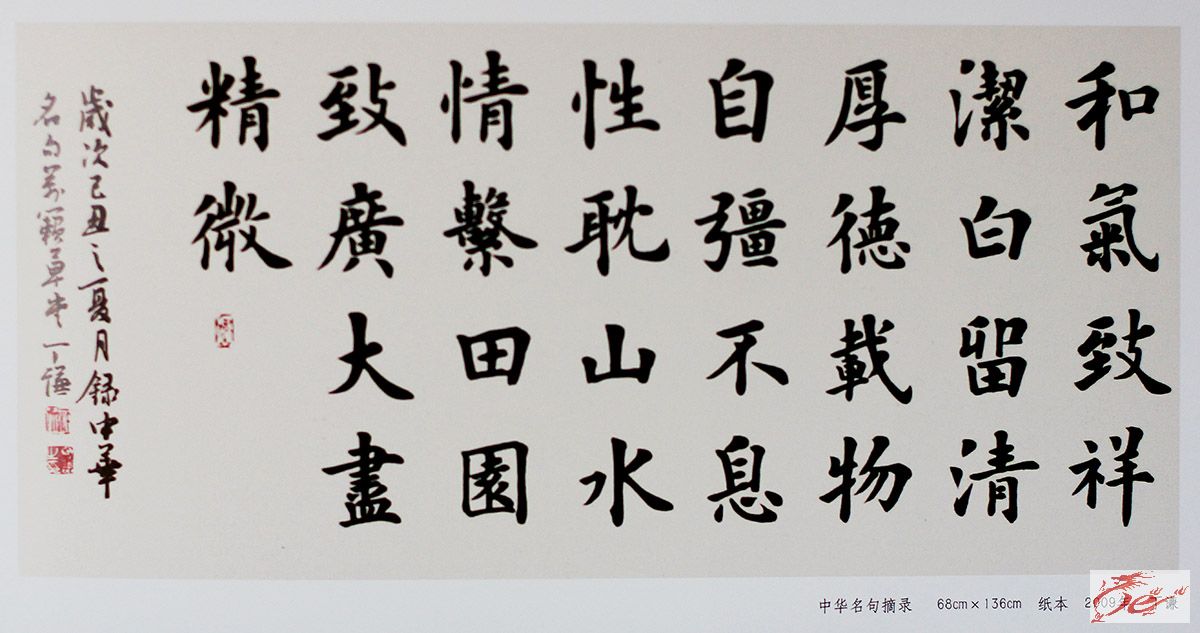 和氣致祥
潔白留清
厚德載物
自彊不息
性耽山水
情繫田園
致廣大盡
精微
歲次己丑之夏月錄中華
名句萬籟草堂丁謙
中华名句摘录 68cm×136cm 纸本 2009年 谦